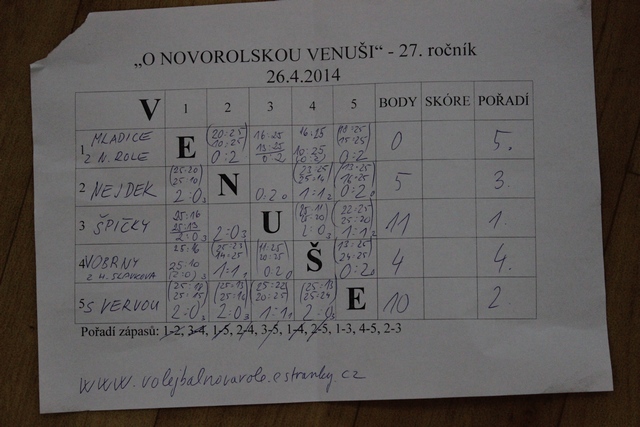 „O NOVOROLSKOU VENUŠI“ - 27. ročník
26.4.2014
V 1 2 3 4 5 BODY SKÓRE POŘADÍ
1 MLADICE Z N. ROLE E 20:25 10:25 0:2 16:25 13:25 0:2 16:25 10:25 (0:2) 15:25 0:2 0 5.
2 NEJDEK (25:20) (25:10) 2:0 N 0:2 23:25 25:14 1:1 13:25 16:25 0:2 5 3.
3 ŠPIČKY 25:16 25:13 2:0 2:0 U 25:11 25:20 2:0 22:25 25:20 1:1 11 1.
4 VOBRNY Z H. SLAVKOVA 25:16 25:10 (2:0) 25:23 14:25 1:1 11:25 20:25 0:2 Š 13:25 24:25 0:2 4 4.
5 S VERVOU 25:15 2:0 25:13 25:16 2:0 25:22 20:25 1:1 25:13 25:24 2:0 E 10 2
Pořadí zápasů: 1-2, 3-4, 1-5, 2-4, 3-5, 1-4, 2-5, 1-3, 4-5, 2-3
www.volejbalnovarole.estranky.cz